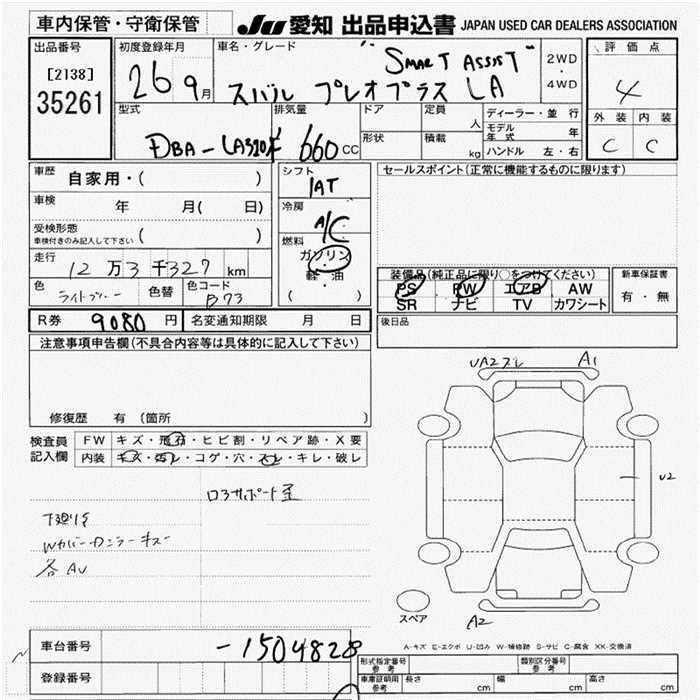 車内保管・守衛保管
JU 愛知 出品申込書 JAPAN USED CAR DEALERS ASSOCIATION
出品番号
[2138]
35261
初度登録年月
26 9月
車名・グレード
"SMART ASSIST"
スバル プレオプラス LA
2WD
・
4WD
評価点
4
外装 内装
C C
型式
DBA-LA320F
排気量
660 CC
ドア
形状
定員
人
積載
kg
ディーラー・並行
モデル年式 年
ハンドル 左・右
車歴
自家用・( )
車検
年 月( 日)
受検形態
車検付きのみ記入して下さい ( )
走行
12万3千327km
色
ライトブルー
色替
色コード
B73
シフト
IAT
冷房
A/C
燃料
ガソリン
軽・油
( )
セールスポイント(正常に機能するものに限ります)
装備品(純正品に限り○をつけてください)
PS PW エアB AW
SR ナビ TV カワシート
新車保証書
有・無
R券 9080円
名変通知期限 月 日
後日品
注意事項申告欄(不具合内容等は具体的に記入して下さい)
修復歴 有 (箇所 )
検査員
記入欄
FW キズ・飛石・ヒビ割・リペア跡・X要
内装 キズ・汚レ・コゲ・穴・スレ・キレ・破レ
下廻りS
Wカバーカニラーキズ
各AU
UA2 A1
U2
A2
スペア
A-キズ E-エクボ U-凹み W-補修跡 S-サビ C-腐食 XX-交換済
車台番号
-1504828
登録番号
形式指定番号
参考
類別区分番号
参考
車庫証明用
参考
長さ cm
幅 cm
高さ cm